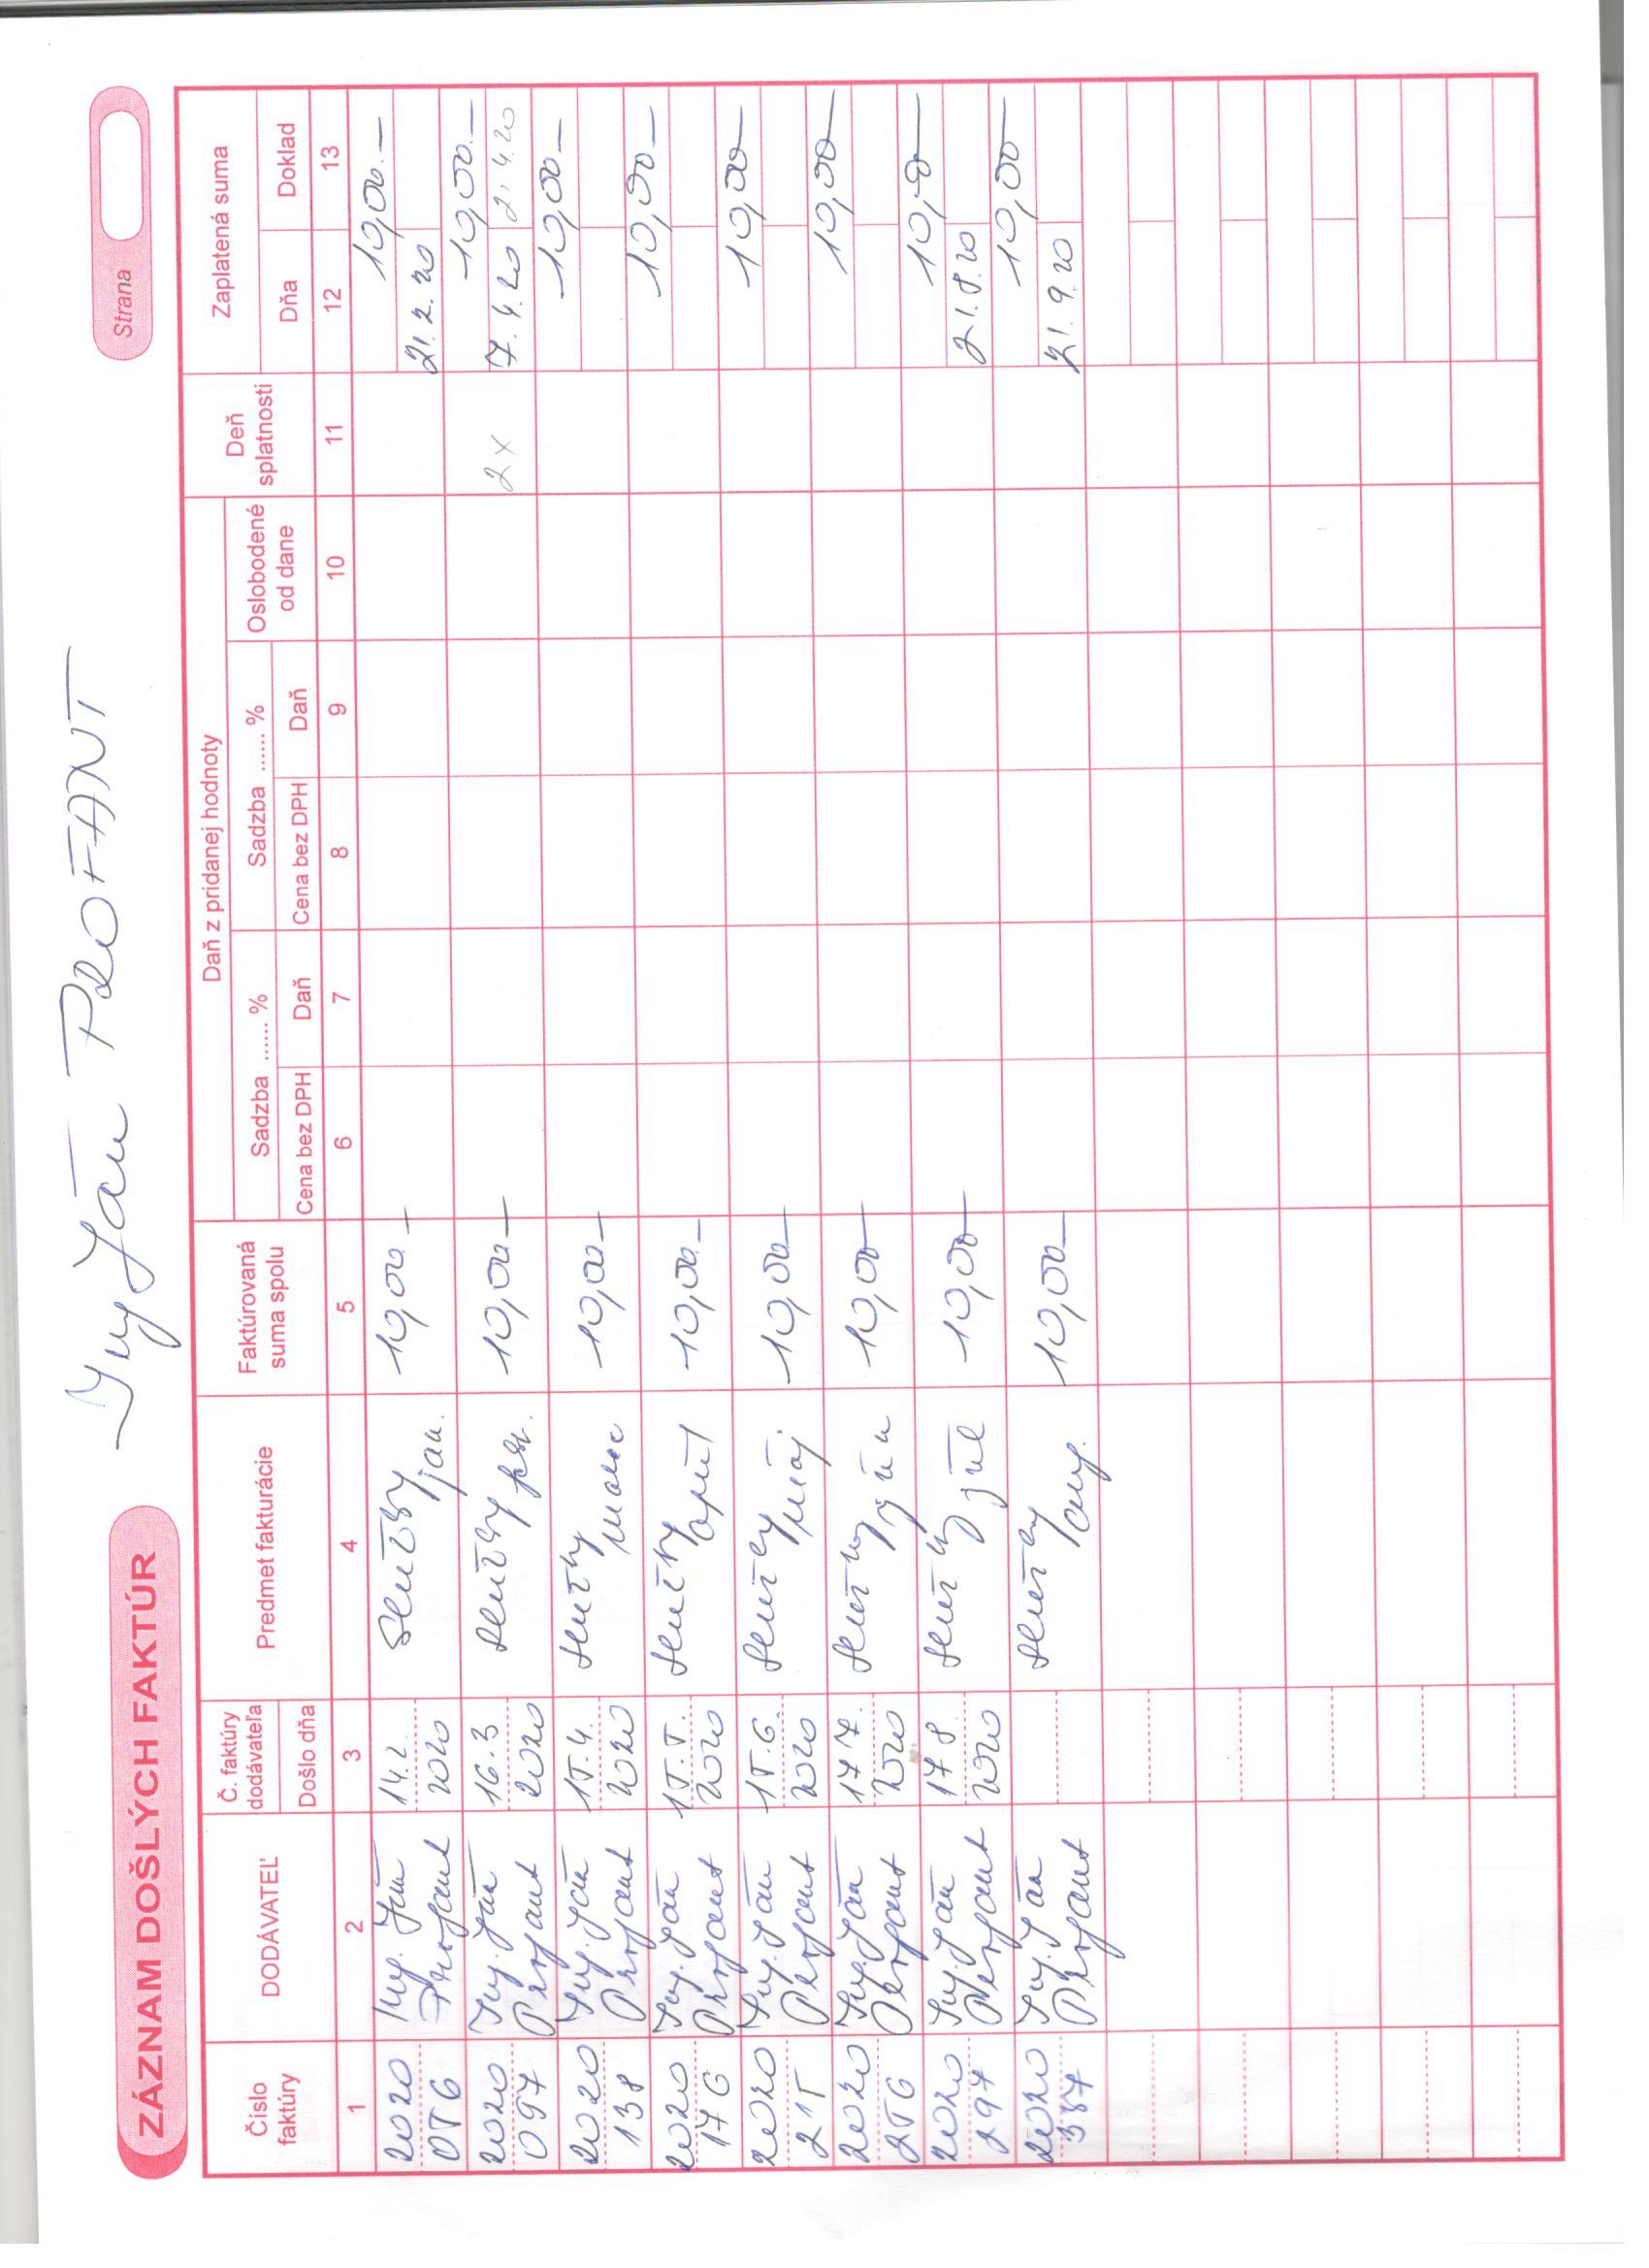 Ing Ján PROFANT
Strana
ZÁZNAM DOŠLÝCH FAKTÚR
Číslo faktúry
DODÁVATEĽ
Č. faktúry dodávateľa
Došlo dňa
Predmet fakturácie
Faktúrovaná suma spolu
Daň z pridanej hodnoty
Sadzba ...... %
Cena bez DPH
Daň
Sadzba ...... %
Cena bez DPH
Daň
Oslobodené od dane
Deň splatnosti
Zaplatená suma
Dňa
Doklad
1 2 3 4 5 6 7 8 9 10 11 12 13
2020 Ing. Ján 14.2. služby 10,00.– 10,00.–
056 Profant 2020 jan. 21.2.20
2020 Ing. Ján 16.3 služby 10,00– 10,00.–
097 Profant 2020 2x 7.4.20 2.4.20
2020 Ing. Ján 15.4. služby 10,00– 10,00–
138 Profant 2020 marec
2020 Ing. Ján 15.5. služby 10,00.– 10,00–
176 Profant 2020 apríl
2020 Ing. Ján 15.6. služby 10,00– 10,00–
215 Profant 2020 máj
2020 Ing. Ján 17 7. služby 10,00– 10,00–
256 Profant 2020 jún
2020 Ing. Ján 17 8. služby 10,00– 10,00–
297 Profant 2020 júl 21.8.20
2020 Ing. Ján služby 10,00– 10,00–
Profant aug. 21.9.20